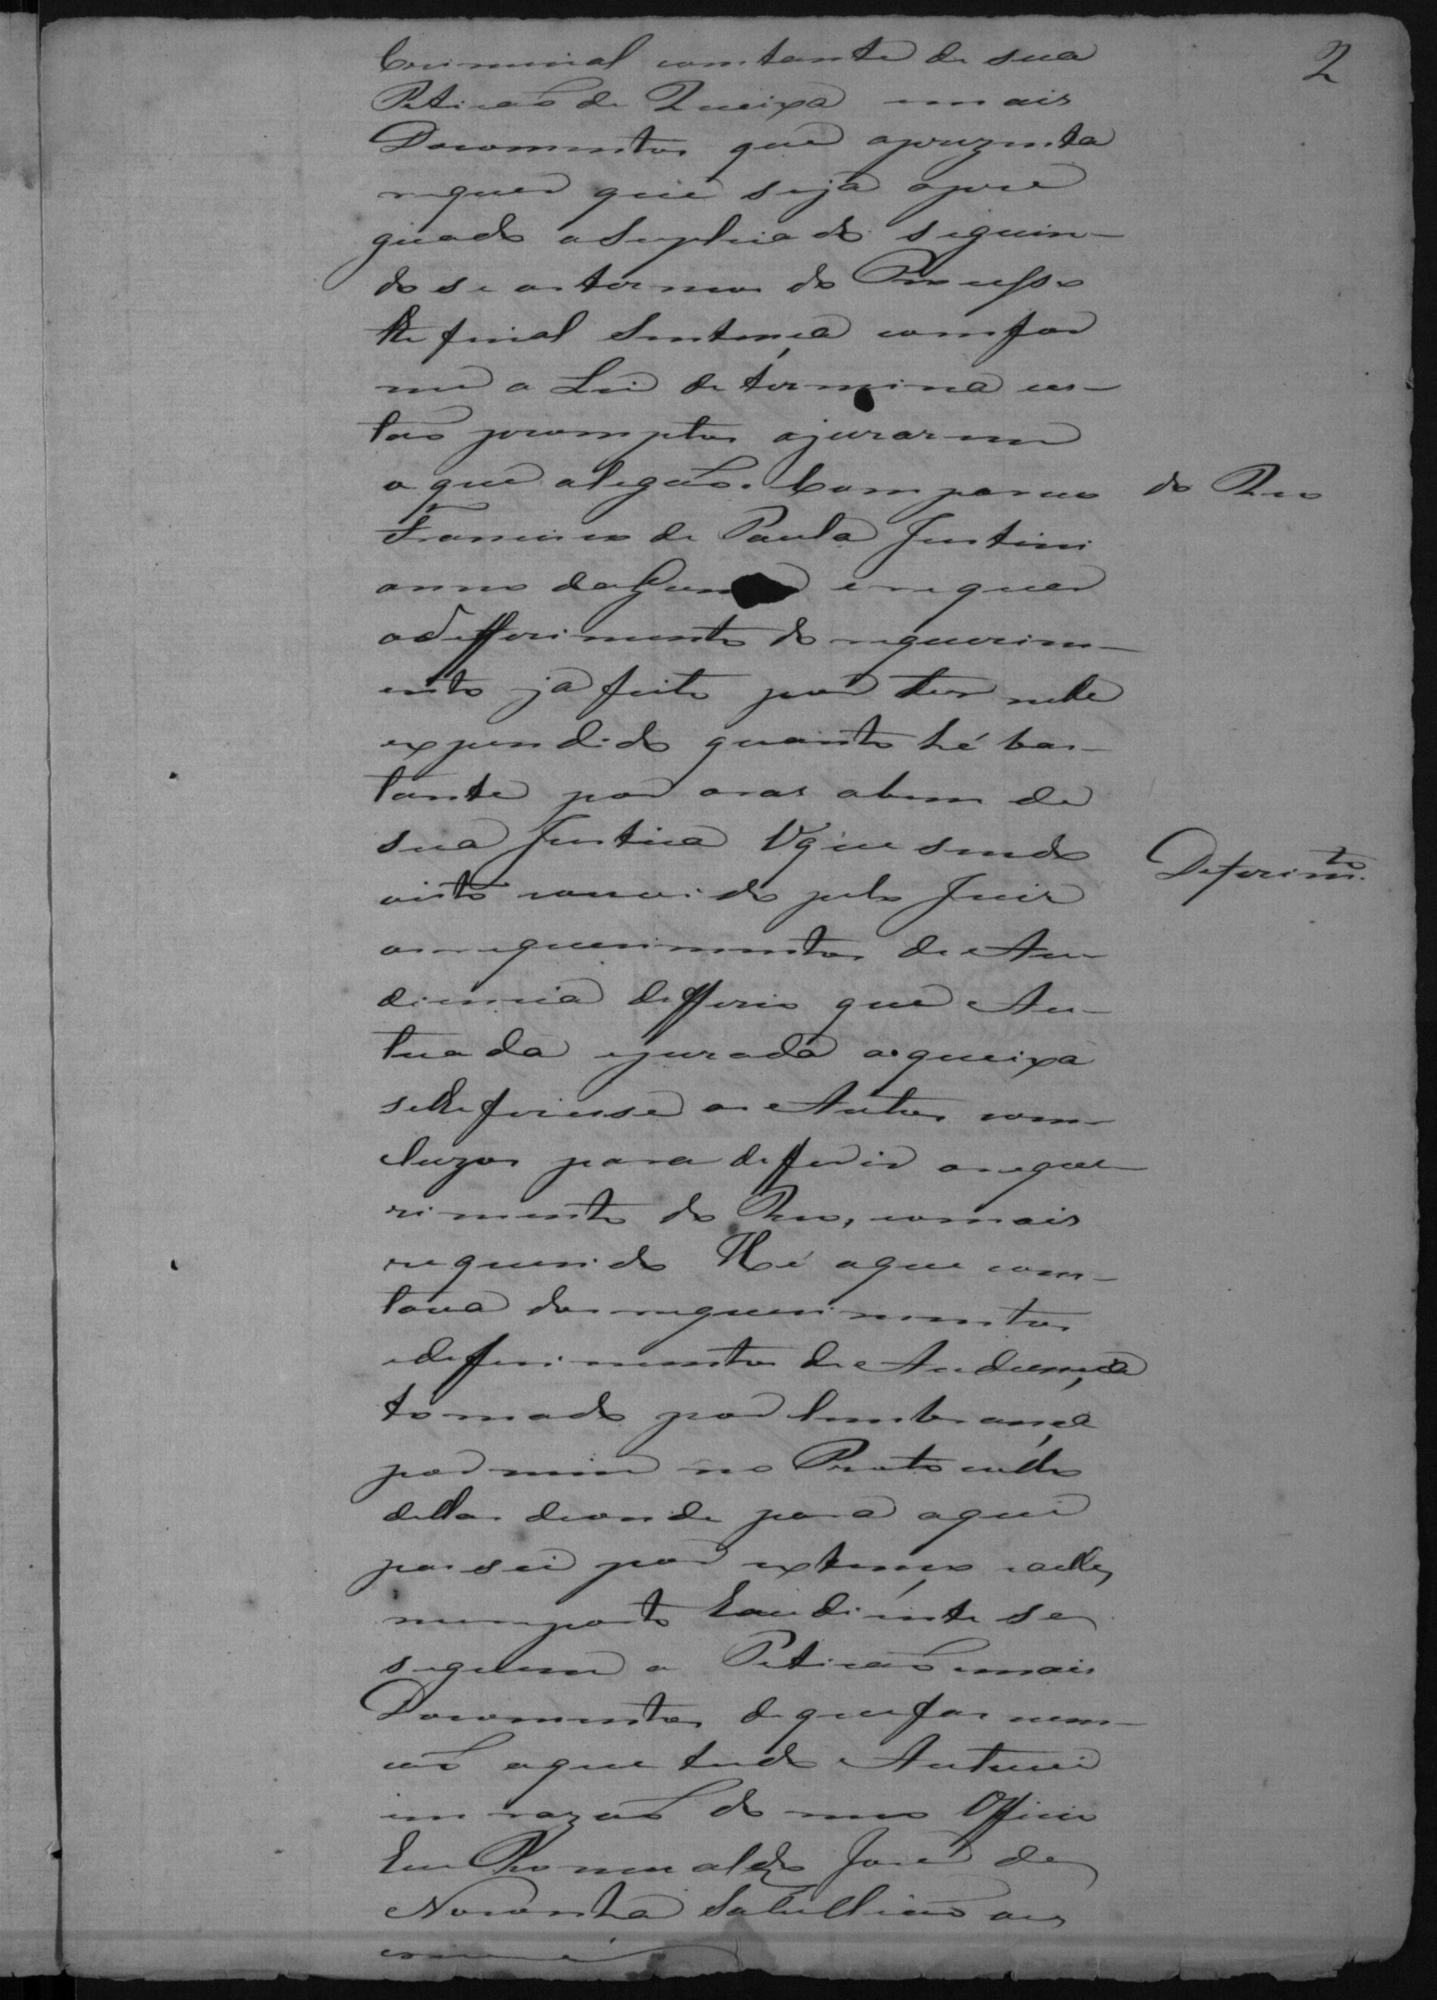 2
Criminal constante de sua
Peticaõ de Queixa e mais
Documentos que aprezenta
requer que seja apre
guado o Suplicado seguin-
do se os termos do Processo
the final Sentença comfor
me a Lei determina es-
tao promptos ajurarem
o que alegaõ. Compareceo
do Reo
Francisco de Paula Justini
anno e requer
o defferimento do requerim-
ento ja feito por ter nelle
expendido quanto hé bas-
tante por ora abem de
sua Justica O que sendo
visto e ouvido pelo Juiz
Deferimto.
os requerimentos de Au-
diencia defferio que Au-
tuada e jurada a queixa
selhe fizesse os Autos con-
cluzos para defferir o reque-
rimento do Reo, e o mais
requerido Hé o que cons-
tava dos requerimentos
e deferimentos de Audiencia
tomado por lembrança
por mim no Protocollo
dellas de onde para aqui
passei por extenso e
se
seguem a Peticaõ e mais
Documentos de que faz men-
caõ o que tudo Autuei
em razaõ do meu Officio
Eu Romualdo José de
Noronha Tabelliaõ que
escrevi